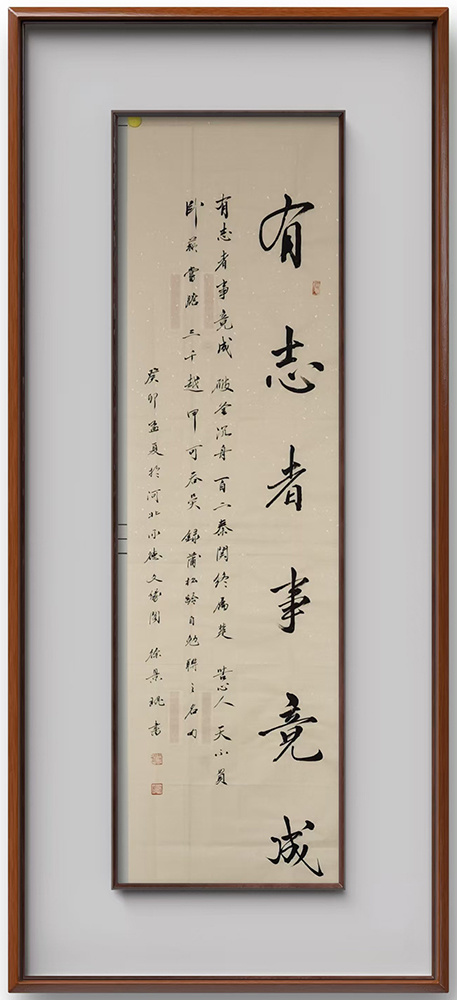 有志者事竟成
有志者事竟成 破釜沉舟 百二秦関终属楚 苦心人 天不負
卧薪嘗胆 三千越甲可吞吴 録蒲松龄自勉联之名句
癸卯孟夏於河北承德文儒阁 徐景琨书